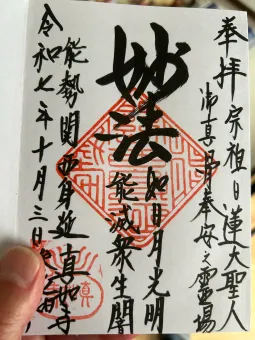 奉拝 宗祖日蓮大聖人
御真骨奉安之霊場
妙法
如日月光明
能滅衆生闇
能勢関西身延真如寺
令和七年十月三日